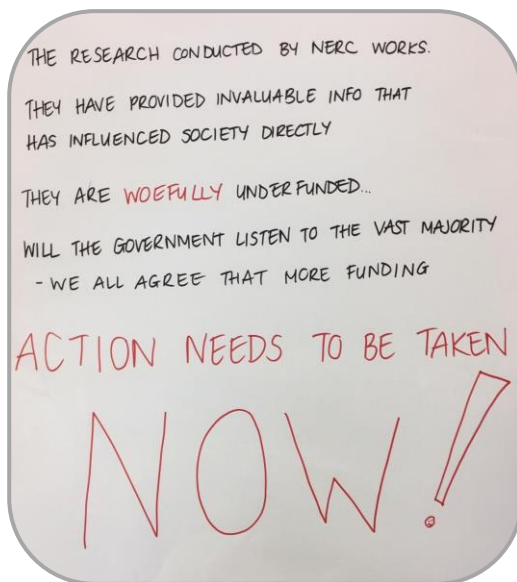 THE RESEARCH CONDUCTED BY NERC WORKS.
THEY HAVE PROVIDED INVALUABLE INFO THAT
HAS INFLUENCED SOCIETY DIRECTLY
THEY ARE WOEFULLY UNDERFUNDED...
WILL THE GOVERNMENT LISTEN TO THE VAST MAJORITY
- WE ALL AGREE THAT MORE FUNDING
ACTION NEEDS TO BE TAKEN
NOW!